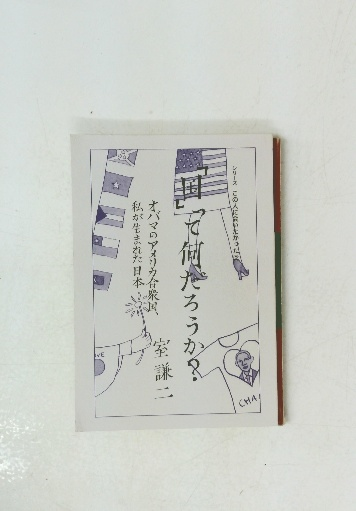 シリーズ この人に会いたかった
「国」って何だろうか?
オバマのアメリカ合衆国、
私が生まれた日本
室謙二
CHA